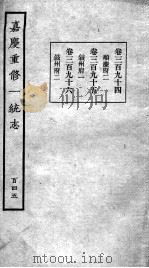 嘉慶重修一統志
百四五
卷三百九十四
順慶府二
卷三百九十五
敘州府一
卷三百九十六
敘州府二